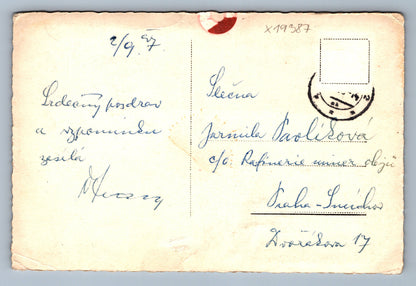 X19387
2/9.47
Srdečný pozdrav
a vzpomínku
zasílá
Slečna
Jarmila Pavlíková
c/o Rafinerie miner. olejů
Praha-Smíchov
Dvořákova 17